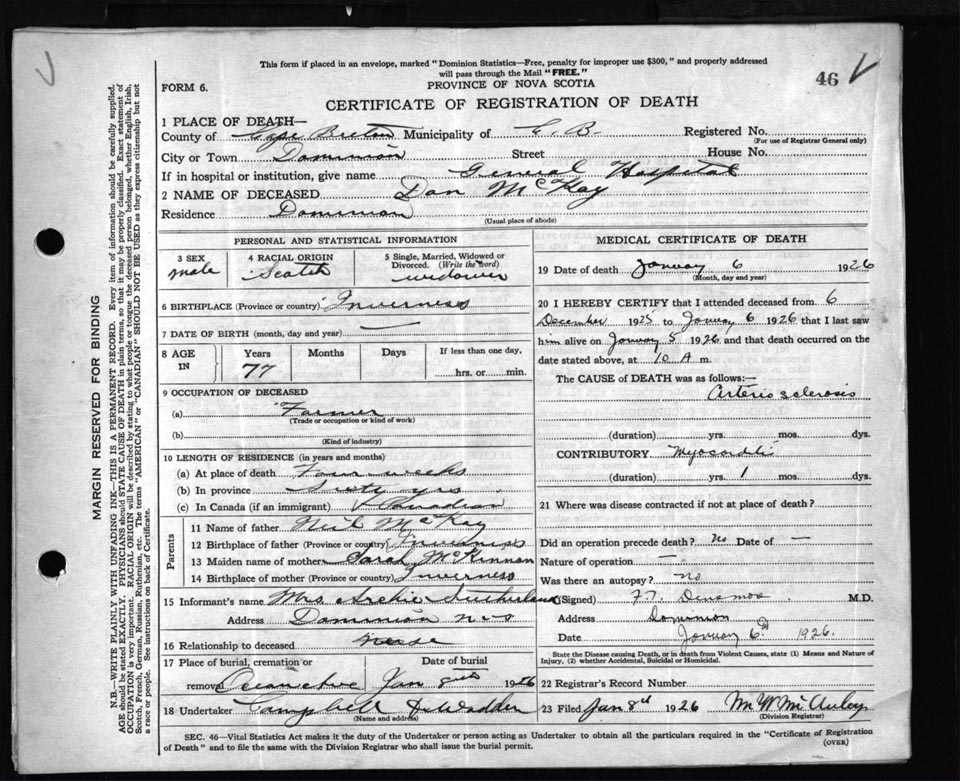 This form if placed in an envelope, marked "Dominion Statistics—Free, penalty for improper use $300," and properly addressed
will pass through the Mail "FREE."
46
FORM 6.
PROVINCE OF NOVA SCOTIA
CERTIFICATE OF REGISTRATION OF DEATH
1 PLACE OF DEATH—
County of Cape Breton Municipality of C. B. Registered No.
(For use of Registrar General only)
City or Town Dominion Street House No.
If in hospital or institution, give name General Hospital
2 NAME OF DECEASED Dan McKay
Residence Dominion
(Usual place of abode)
PERSONAL AND STATISTICAL INFORMATION
3 SEX 4 RACIAL ORIGIN 5 Single, Married, Widowed or
Divorced. (Write the word)
male Scotch widower
6 BIRTHPLACE (Province or country) Inverness
7 DATE OF BIRTH (month, day and year) —
8 AGE IN Years Months Days If less than one day,
77 hrs. or min.
9 OCCUPATION OF DECEASED
(a) Farmer
(Trade or occupation or kind of work)
(b)
(Kind of industry)
10 LENGTH OF RESIDENCE (in years and months)
(a) At place of death Four weeks
(b) In province Sixty yrs
(c) In Canada (if an immigrant) Canadian
Parents
11 Name of father Neil McKay
12 Birthplace of father (Province or country) Inverness
13 Maiden name of mother Sarah McKinnon
14 Birthplace of mother (Province or country) Inverness
15 Informant's name Mrs Archie Sutherland
Address Dominion N-S
16 Relationship to deceased
17 Place of burial, cremation or Date of burial
removal Jan 8th 1926
18 Undertaker Campbell
(Name and address)
MEDICAL CERTIFICATE OF DEATH
19 Date of death January 6 1926
(Month, day and year)
20 I HEREBY CERTIFY that I attended deceased from 6
December 1925 to January 6 1926 that I last saw
him alive on January 5 1926 and that death occurred on the
date stated above, at 10 A m.
The CAUSE OF DEATH was as follows:—
Arterio sclerosis
(duration) yrs. mos. dys.
CONTRIBUTORY Myocarditis
(duration) yrs. 1 mos. dys.
21 Where was disease contracted if not at place of death?
Did an operation precede death? no Date of —
Nature of operation -
Was there an autopsy? no
(Signed) M.D.
Address Dominion
Date January 6th 1926.
State the Disease causing Death, or in death from Violent Causes, state (1) Means and Nature of
Injury, (2) whether Accidental, Suicidal or Homicidal.
22 Registrar's Record Number
23 Filed Jan 8th 1926 M W McAuley
(Division Registrar)
SEC. 46—Vital Statistics Act makes it the duty of the Undertaker or person acting as Undertaker to obtain all the particulars required in the "Certificate of Registration
of Death" and to file the same with the Division Registrar who shall issue the burial permit.
(OVER)
MARGIN RESERVED FOR BINDING
N.B.—WRITE PLAINLY WITH UNFADING INK—THIS IS A PERMANENT RECORD. Every item of information should be carefully supplied.
AGE should be stated EXACTLY. PHYSICIANS should STATE CAUSE OF DEATH in plain terms, so that it may be properly classified. Exact statement of
OCCUPATION is very important. RACIAL ORIGIN will be described by stating to what people or tongue the deceased person belonged, whether English, Irish,
Scotch, French, German, Russian, Ruthenian, etc. The terms "AMERICAN" or "CANADIAN" SHOULD NOT BE USED as they express citizenship but not
a race or people. See instructions on back of Certificate.